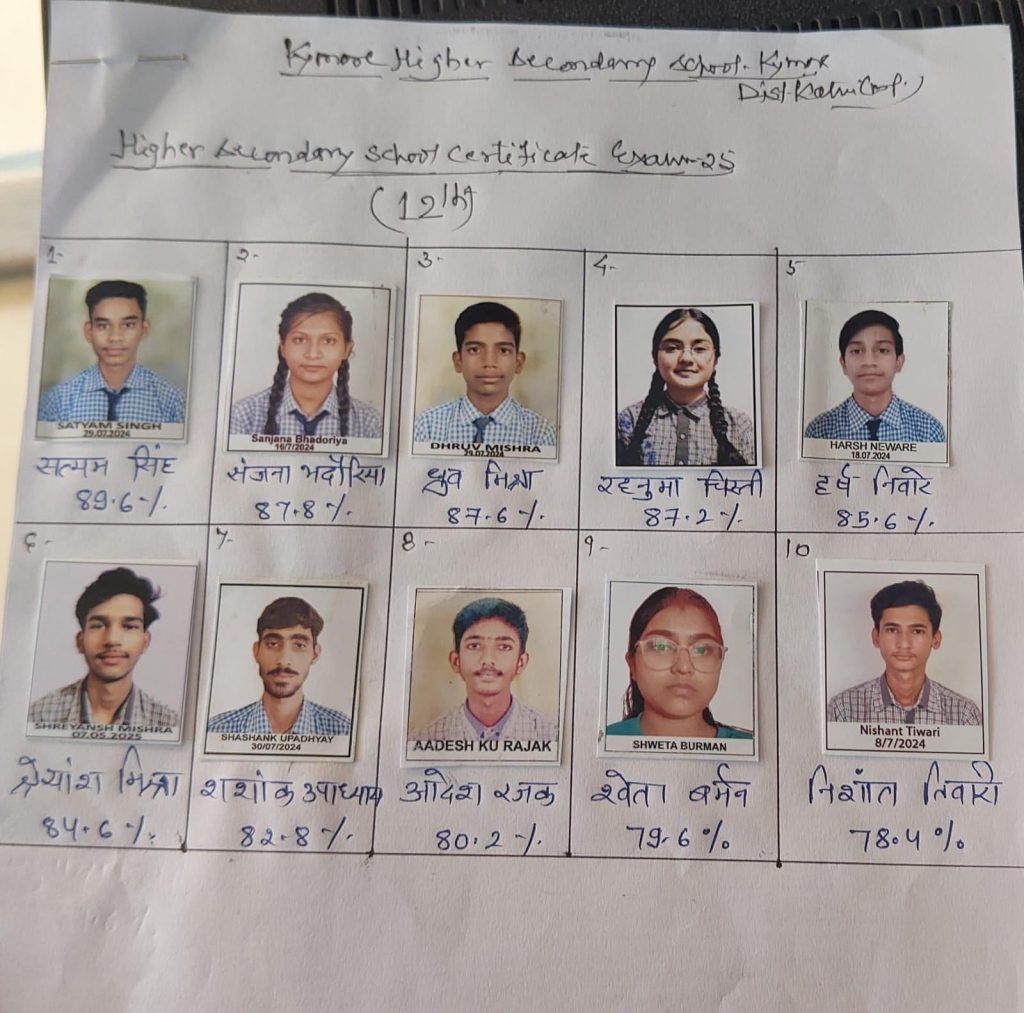 Kymore Higher Secondary School. Kymore
Dist-Katni (m.p.)
Higher Secondary School Certificate Exam-25
(12th)
1-
SATYAM SINGH
29.07.2024
सत्यम सिंह
89.6 %
2-
Sanjana Bhadoriya
16/7/2024
संजना भदौरिया
87.8 %
3-
DHRUV MISHRA
29.07.2024
ध्रुव मिश्रा
87.6 %
4-
रहनुमा चिस्ती
87.2 %
5
HARSH NEWARE
18.07.2024
हर्ष निवारे
85.6 %
6-
SHREYANSH MISHRA
07.05.2025
श्रेयांश मिश्रा
84.6 %
7-
SHASHANK UPADHYAY
30/07/2024
शशांक उपाध्याय
82.8 %
8-
AADESH KU RAJAK
आदेश रजक
80.2 %
9-
SHWETA BURMAN
श्वेता बर्मन
79.6 %
10
Nishant Tiwari
8/7/2024
निशांत तिवारी
78.4 %